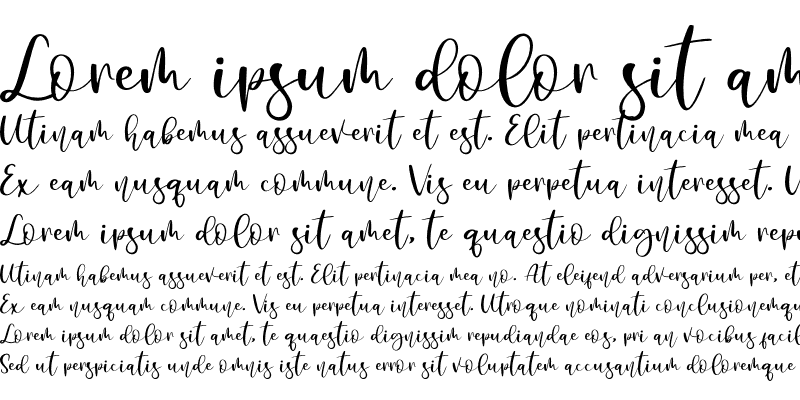 Lorem ipsum dolor sit am
Utinam habemus assueverit et est. Elit pertinacia mea
Ex eam nusquam commune. Vis eu perpetua interesset. U
Lorem ipsum dolor sit amet, te quaestio dignissim repu
Utinam habemus assueverit et est. Elit pertinacia mea no. At eleifend adversarium per, et
Ex eam nusquam commune. Vis eu perpetua interesset. Utroque nominati conclusionemqu
Lorem ipsum dolor sit amet, te quaestio dignissim repudiandae eos, pri an vocibus facil
Sed ut perspiciatis unde omnis iste natus error sit voluptatem accusantium doloremque